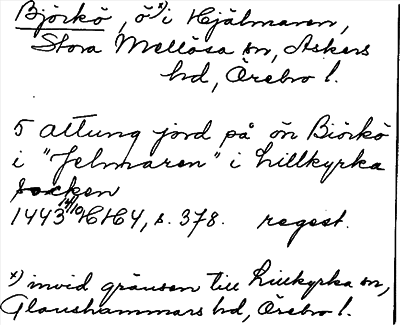 Björkö, ö x) i Hjälmaren,
Stora Mellösa sn, Askers
hd, Örebro l.
5 attung jord på ön Biörkö
i "Jelmaren" i Lillkyrka
socken
1443 14/10 HH4, s. 378. regest.
x) invid gränsen till Lillkyrka sn,
Glanshammars hd, Örebro l.